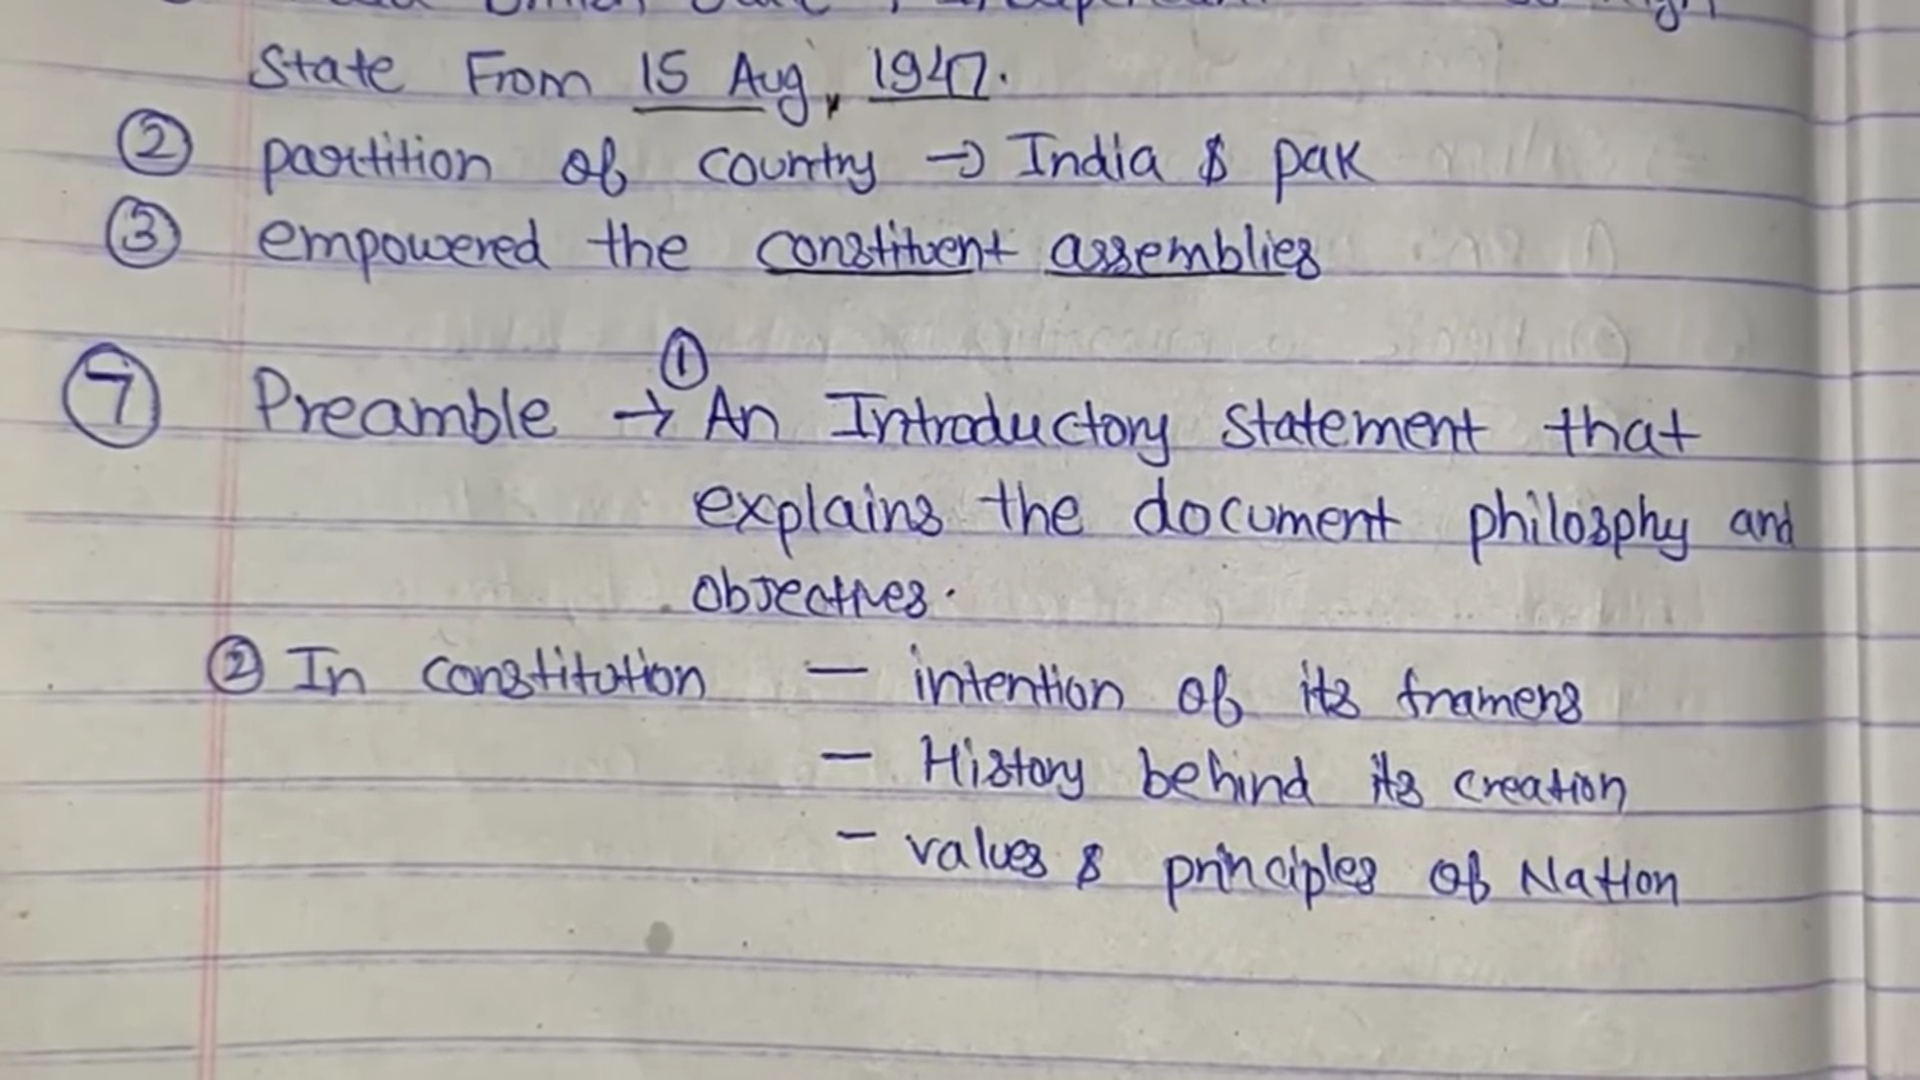 State From 15 Aug, 1947.
② partition of country → India & pak
③ empowered the constituent assemblies
①
⑦ Preamble → An Introductory statement that
explains the document philosphy and
objectives.
② In constitution — intention of its framers
— History behind its creation
- values & principles of Nation